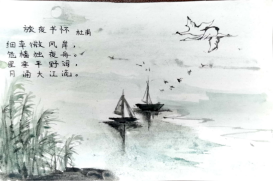 旅夜书怀 杜甫
细草微风岸，
危樯独夜舟。
星垂平野阔，
月涌大江流。